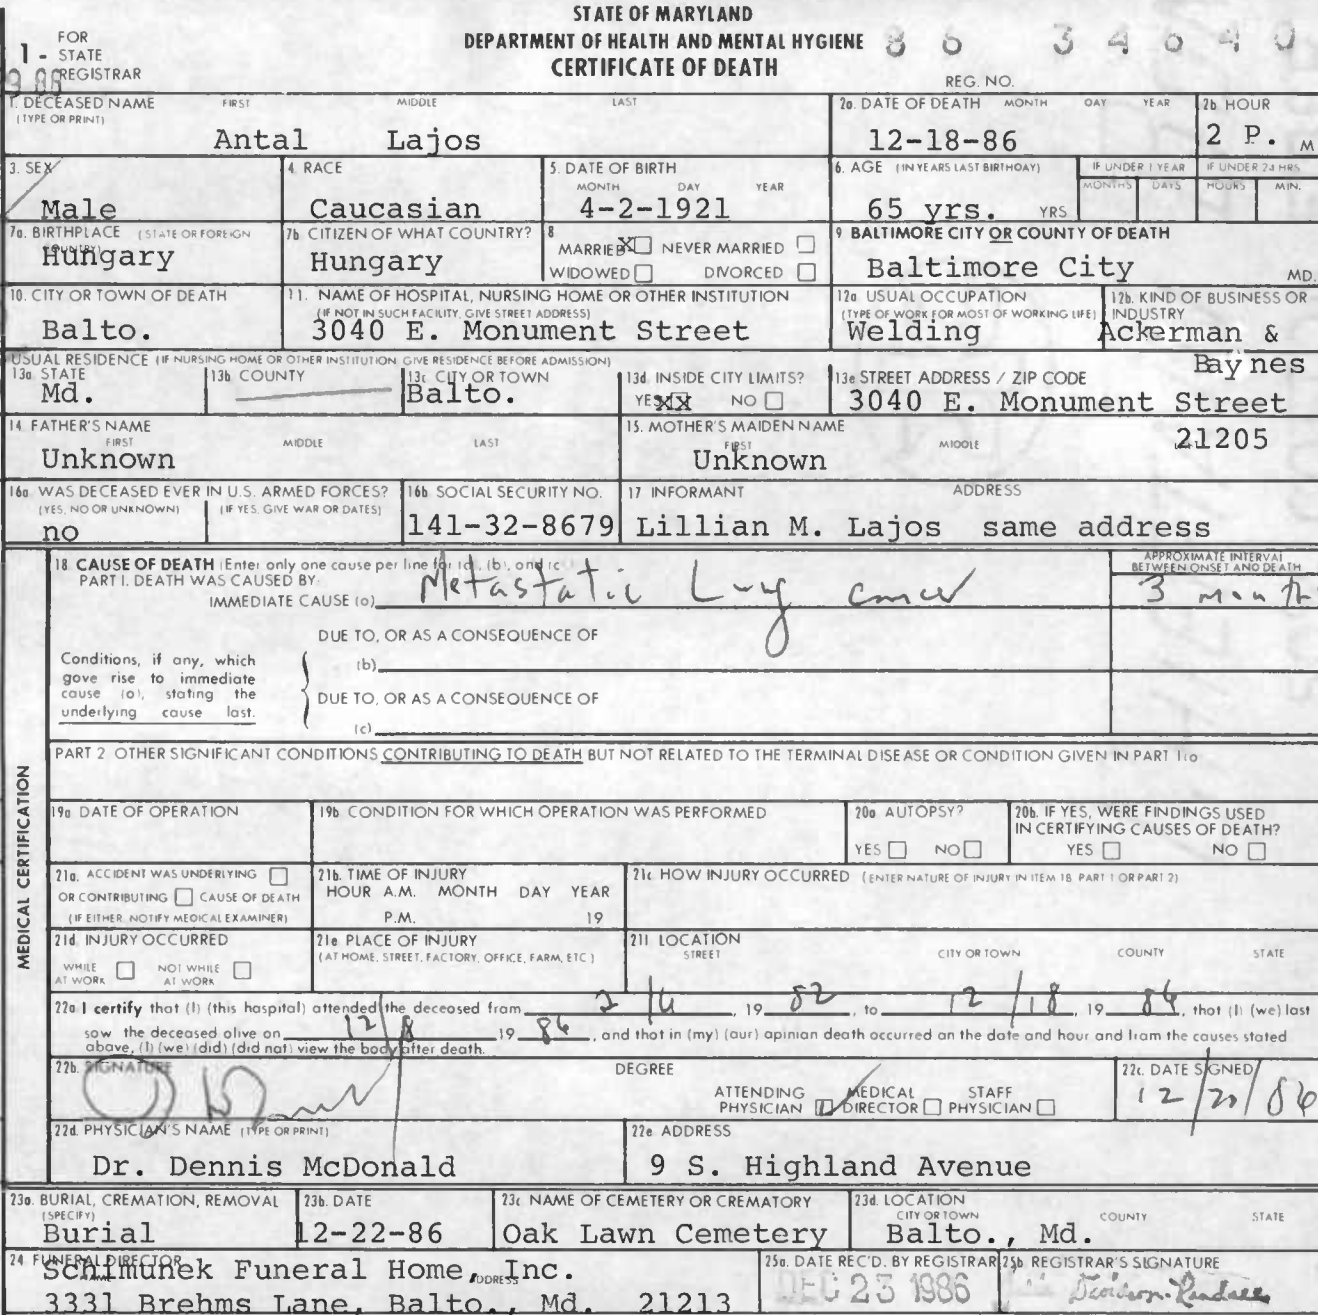 STATE OF MARYLAND
DEPARTMENT OF HEALTH AND MENTAL HYGIENE
CERTIFICATE OF DEATH
1 - FOR STATE REGISTRAR
86 34640
REG. NO.
1. DECEASED NAME (TYPE OR PRINT) FIRST MIDDLE LAST
Antal Lajos
2a. DATE OF DEATH MONTH DAY YEAR
12-18-86
2b HOUR
2 P. M
3. SEX
Male
4. RACE
Caucasian
5. DATE OF BIRTH MONTH DAY YEAR
4-2-1921
6. AGE (IN YEARS LAST BIRTHDAY)
65 yrs. YRS
IF UNDER 1 YEAR MONTHS DAYS
IF UNDER 24 HRS HOURS MIN.
7a. BIRTHPLACE (STATE OR FOREIGN COUNTRY)
Hungary
7b CITIZEN OF WHAT COUNTRY?
Hungary
8 MARRIED X NEVER MARRIED
WIDOWED DIVORCED
9 BALTIMORE CITY OR COUNTY OF DEATH
Baltimore City MD.
10. CITY OR TOWN OF DEATH
Balto.
11. NAME OF HOSPITAL, NURSING HOME OR OTHER INSTITUTION
(IF NOT IN SUCH FACILITY, GIVE STREET ADDRESS)
3040 E. Monument Street
12a USUAL OCCUPATION
(TYPE OF WORK FOR MOST OF WORKING LIFE)
Welding
12b. KIND OF BUSINESS OR INDUSTRY
Ackerman &
Baynes
USUAL RESIDENCE (IF NURSING HOME OR OTHER INSTITUTION GIVE RESIDENCE BEFORE ADMISSION)
13a STATE
Md.
13b COUNTY
13c CITY OR TOWN
Balto.
13d INSIDE CITY LIMITS?
YES XX NO
13e STREET ADDRESS / ZIP CODE
3040 E. Monument Street
21205
14 FATHER'S NAME FIRST MIDDLE LAST
Unknown
15. MOTHER'S MAIDEN NAME FIRST MIDDLE
Unknown
16a WAS DECEASED EVER IN U.S. ARMED FORCES?
(YES, NO OR UNKNOWN) (IF YES, GIVE WAR OR DATES)
no
16b SOCIAL SECURITY NO.
141-32-8679
17 INFORMANT ADDRESS
Lillian M. Lajos same address
MEDICAL CERTIFICATION
18 CAUSE OF DEATH (Enter only one cause per line for (a), (b), and (c)
PART I. DEATH WAS CAUSED BY:
IMMEDIATE CAUSE (a) Metastatic Lung cancer
APPROXIMATE INTERVAL BETWEEN ONSET AND DEATH
3 month
DUE TO, OR AS A CONSEQUENCE OF
(b)
DUE TO, OR AS A CONSEQUENCE OF
(c)
Conditions, if any, which
gave rise to immediate
cause (a), stating the
underlying cause last.
PART 2 OTHER SIGNIFICANT CONDITIONS CONTRIBUTING TO DEATH BUT NOT RELATED TO THE TERMINAL DISEASE OR CONDITION GIVEN IN PART 1(a
19a DATE OF OPERATION
19b CONDITION FOR WHICH OPERATION WAS PERFORMED
20a AUTOPSY?
YES NO
20b. IF YES, WERE FINDINGS USED
IN CERTIFYING CAUSES OF DEATH?
YES NO
21a. ACCIDENT WAS UNDERLYING
OR CONTRIBUTING CAUSE OF DEATH
(IF EITHER, NOTIFY MEDICAL EXAMINER)
21b. TIME OF INJURY
HOUR A.M. MONTH DAY YEAR
P.M. 19
21c HOW INJURY OCCURRED (ENTER NATURE OF INJURY IN ITEM 18 PART 1 OR PART 2)
21d INJURY OCCURRED
WHILE AT WORK NOT WHILE AT WORK
21e PLACE OF INJURY
(AT HOME, STREET, FACTORY, OFFICE, FARM, ETC)
21f LOCATION
STREET CITY OR TOWN COUNTY STATE
22a I certify that (I) (this hospital) attended the deceased from 2/4, 19 82, to 12/18, 19 86, that (I) (we) last
saw the deceased alive on 12/8 19 86, and that in (my) (our) opinion death occurred on the date and hour and from the causes stated
above, (I) (we) (did) (did not) view the body after death.
22b. SIGNATURE
DEGREE
ATTENDING PHYSICIAN MEDICAL DIRECTOR STAFF PHYSICIAN
22c. DATE SIGNED
12/20/86
22d. PHYSICIAN'S NAME (TYPE OR PRINT)
Dr. Dennis McDonald
22e ADDRESS
9 S. Highland Avenue
23a. BURIAL, CREMATION, REMOVAL (SPECIFY)
Burial
23b. DATE
12-22-86
23c NAME OF CEMETERY OR CREMATORY
Oak Lawn Cemetery
23d. LOCATION CITY OR TOWN COUNTY STATE
Balto., Md.
24 FUNERAL DIRECTOR ADDRESS
Schimunek Funeral Home, Inc.
3331 Brehms Lane, Balto., Md. 21213
25a. DATE REC'D. BY REGISTRAR
DEC 23 1986
25b REGISTRAR'S SIGNATURE